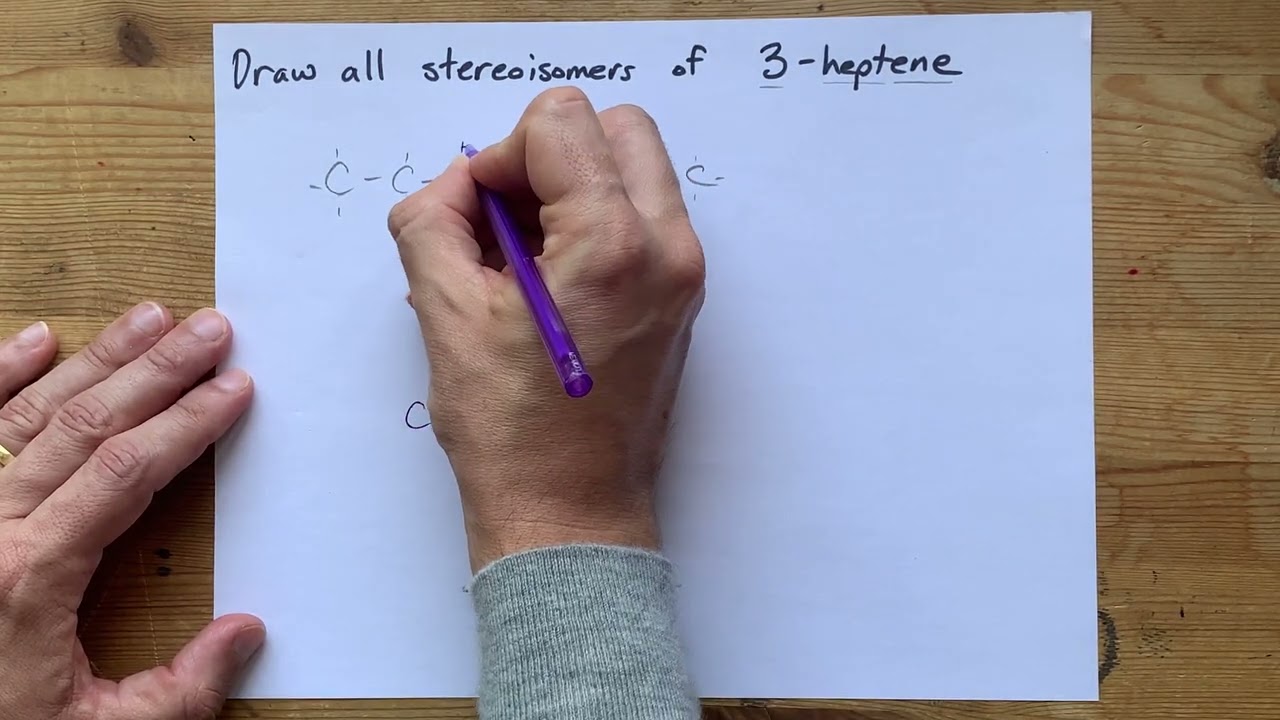 Draw all stereoisomers of 3-heptene
C - C - C -
C